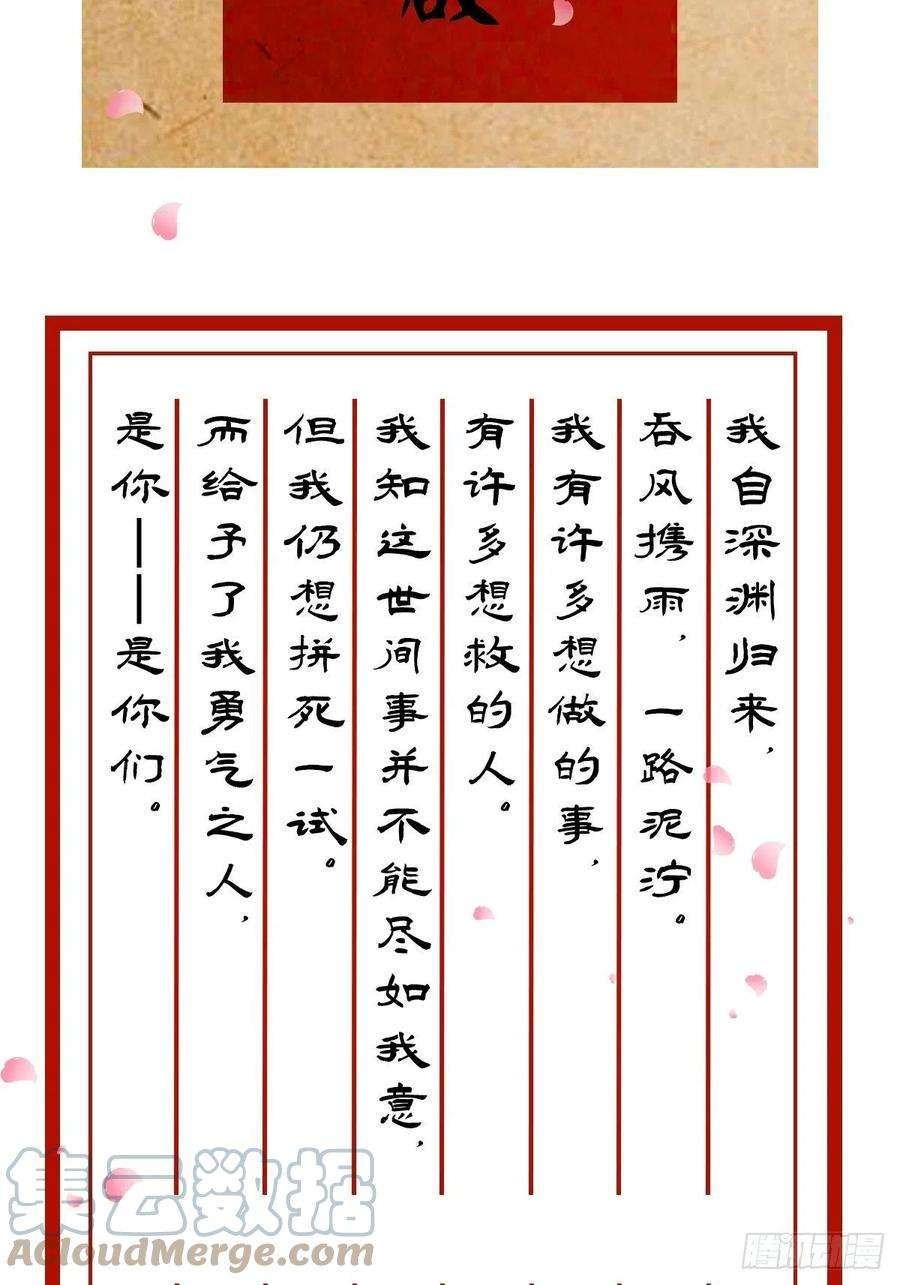 我自深渊归来，
吞风携雨，一路泥泞。
我有许多想做的事，
有许多想救的人。
我知这世间事并不能尽如我意，
但我仍想拼死一试。
而给予了我勇气之人，
是你——是你们。
集云数据
AcloudMerge.com
腾讯动漫